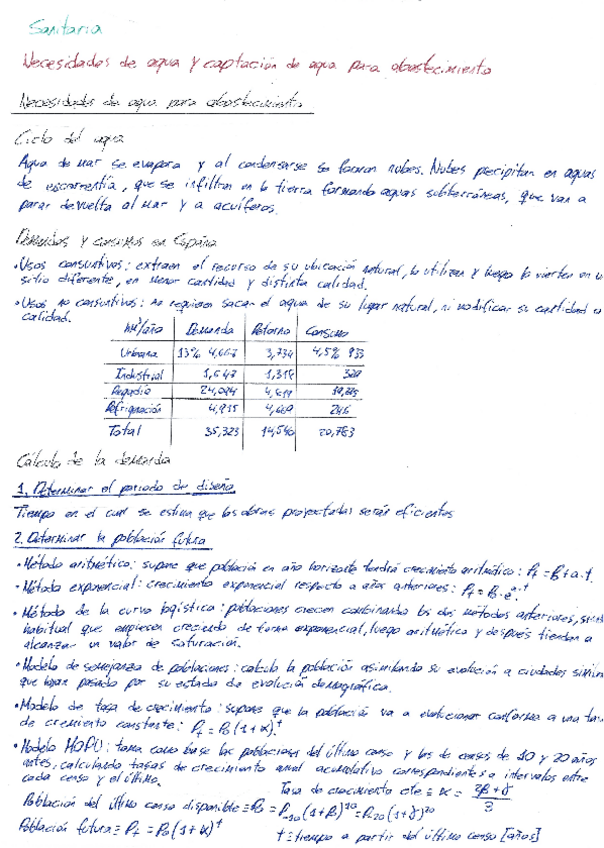 Sanitaria
Necesidades de agua y captación de agua para abastecimiento
Necesidades de agua para abastecimiento
Ciclo del agua
Agua de mar se evapora y al condensarse se forman nubes. Nubes precipitan en aguas
de escorrentía, que se infiltran en la tierra formando aguas subterráneas, que van a
parar de vuelta al mar y a acuíferos.
Demandas y consumos en España
• Usos consuntivos: extraen el recurso de su ubicación natural, lo utilizan y luego lo vierten en u
sitio diferente, en menor cantidad y distinta calidad.
• Usos no consuntivos: no requieren sacar el agua de su lugar natural, ni modificar su cantidad
calidad.
hm³/año Demanda Retorno Consumo
Urbana 13% 4,667 3,734 4,5% 933
Industrial 1,647 1,318 329
Regadío 24,094 4,819
Refrigeración 4,915 4,669 246
Total 35,323 14,540 20,783
Cálculo de la demanda
1. Determinar el periodo de diseño
Tiempo en el cual se estima que las obras proyectadas serán eficientes
2. Determinar la población futura
• Método aritmético: supone que población en año horizonte tendrá crecimiento aritmético: Pf = P0 + a·t.
• Método exponencial: crecimiento exponencial respecto a años anteriores: Pf = P0·e^a·t
• Método de la curva logística: poblaciones crecen combinando los dos métodos anteriores, siend
habitual que empiecen creciendo de forma exponencial, luego aritmético y después tienden a
alcanzar un valor de saturación.
• Modelo de semejanza de poblaciones: calcula la población asimilando su evolución a ciudades simila
que hayan pasado por su estado de evolución demográfica.
• Modelo de tasa de crecimiento: supone que la población va a evolucionar conforme a una tas
de cremiento constante: Pf = P0(1+α)^t
• Modelo MOPU: toma como base las poblaciones del último censo y los de censos de 10 y 20 años
antes, calculando tasas de crecimiento anual acumulativo correspondientes a intervalos entre
cada censo y el último. Tasa de crecimiento cte ≡ α = (2β+γ)/3
Población del último censo disponible ≡ P0 = P-10(1+β)^10 = P-20(1+γ)^20
Población futura ≡ Pf = P0(1+α)^t t ≡ tiempo a partir del último censo [años]